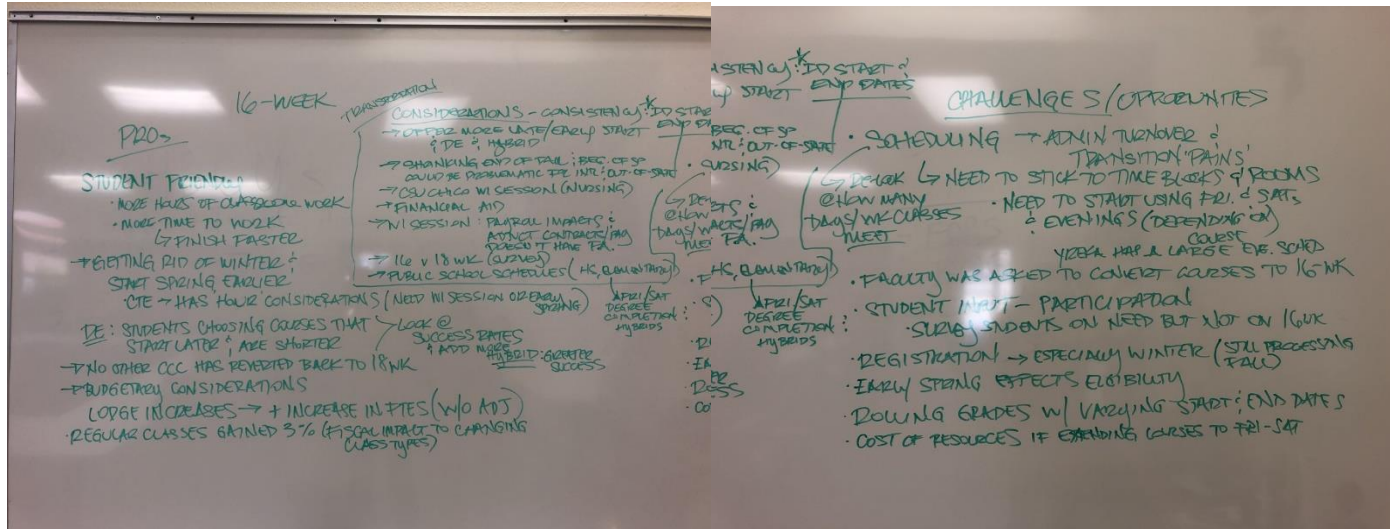 16-WEEK
PROs
STUDENT FRIENDLY
· MORE HOURS OF CLASSROOM WORK
· MORE TIME TO WORK
↳ FINISH FASTER
→ GETTING RID OF WINTER &
START SPRING EARLIER
· CTE → HAS HOUR CONSIDERATIONS (NEED WI SESSION OR EARLY SPRING)
DE: STUDENTS CHOOSING COURSES THAT
START LATER & ARE SHORTER
LOOK @
SUCCESS RATES
& ADD MORE
HYBRID: GREATER
SUCCESS
→ NO OTHER CCC HAS REVERTED BACK TO 18 WK
→ BUDGETARY CONSIDERATIONS
LODGE INCREASES → + INCREASE IN FTES (W/O ADJ)
· REGULAR CLASSES GAINED 3% (FISCAL IMPACT TO CHANGING
CLASS TYPES)
TRANSPORTATION
CONSIDERATIONS - CONSISTENCY: * ID START
END DA
→ OFFER MORE LATE/EARLY START
& DE & HYBRID
→ SHRINKING END OF FALL & BEG. OF SP
COULD BE PROBLEMATIC FR INTL & OUT-OF-SATE
→ CSU CHICO WI SESSION (NURSING)
→ FINANCIAL AID
→ WI SESSION: PAYROLL IMPACTS &
ADJNCT CONTRACTS/PAQ
DOESN'T HAVE F.A.
→ 16 V 18 WK (SURVEY)
→ PUBLIC SCHOOL SCHEDULES (HS, ELEMENTARY)
A FRI/SAT
DEGREE
COMPLETION:
HYBRIDS
↳ DE-
@HOW
DAYS/W
MEET
· F
· S
· R
· EA
· Ro
· Co
STENCY: * ID START &
END DATES
START
BEG. OF SP
NTL & OUT-OF-SATE
URSING)
TS &
ACTS/PAQ
F.A.
HS, ELEMENTARY)
A FRI/SAT
DEGREE
COMPLETION:
HYBRIDS
ER
ESS
CHALLENGES/OPPORUNITES
· SCHEDULING → ADMIN TURNOVER &
TRANSITION 'PAINS'
↳ RE-LOOK
@HOW MANY
DAYS/WK CLASSES
MEET
↳ NEED TO STICK TO TIME BLOCKS & ROOMS
· NEED TO START USING FRI. & SATs
& EVENINGS (DEPENDING ON
COURSE
YREKA HAS A LARGE EVE. SCHED
· FACULTY WAS ASKED TO CONVERT COURSES TO 16-WK
· STUDENT INPUT - PARTICIPATION
· SURVEY STUDENTS ON NEED BUT NOT ON 16 WK
· REGISTRATION → ESPECIALLY WINTER (STILL PROCESSING
FALL)
· EARLY SPRING EFFECTS ELGIBILITY
· ROLLING GRADES W/ VARYING START & END DATES
· COST OF RESOURCES IF EXTENDING COURSES TO FRI-SAT